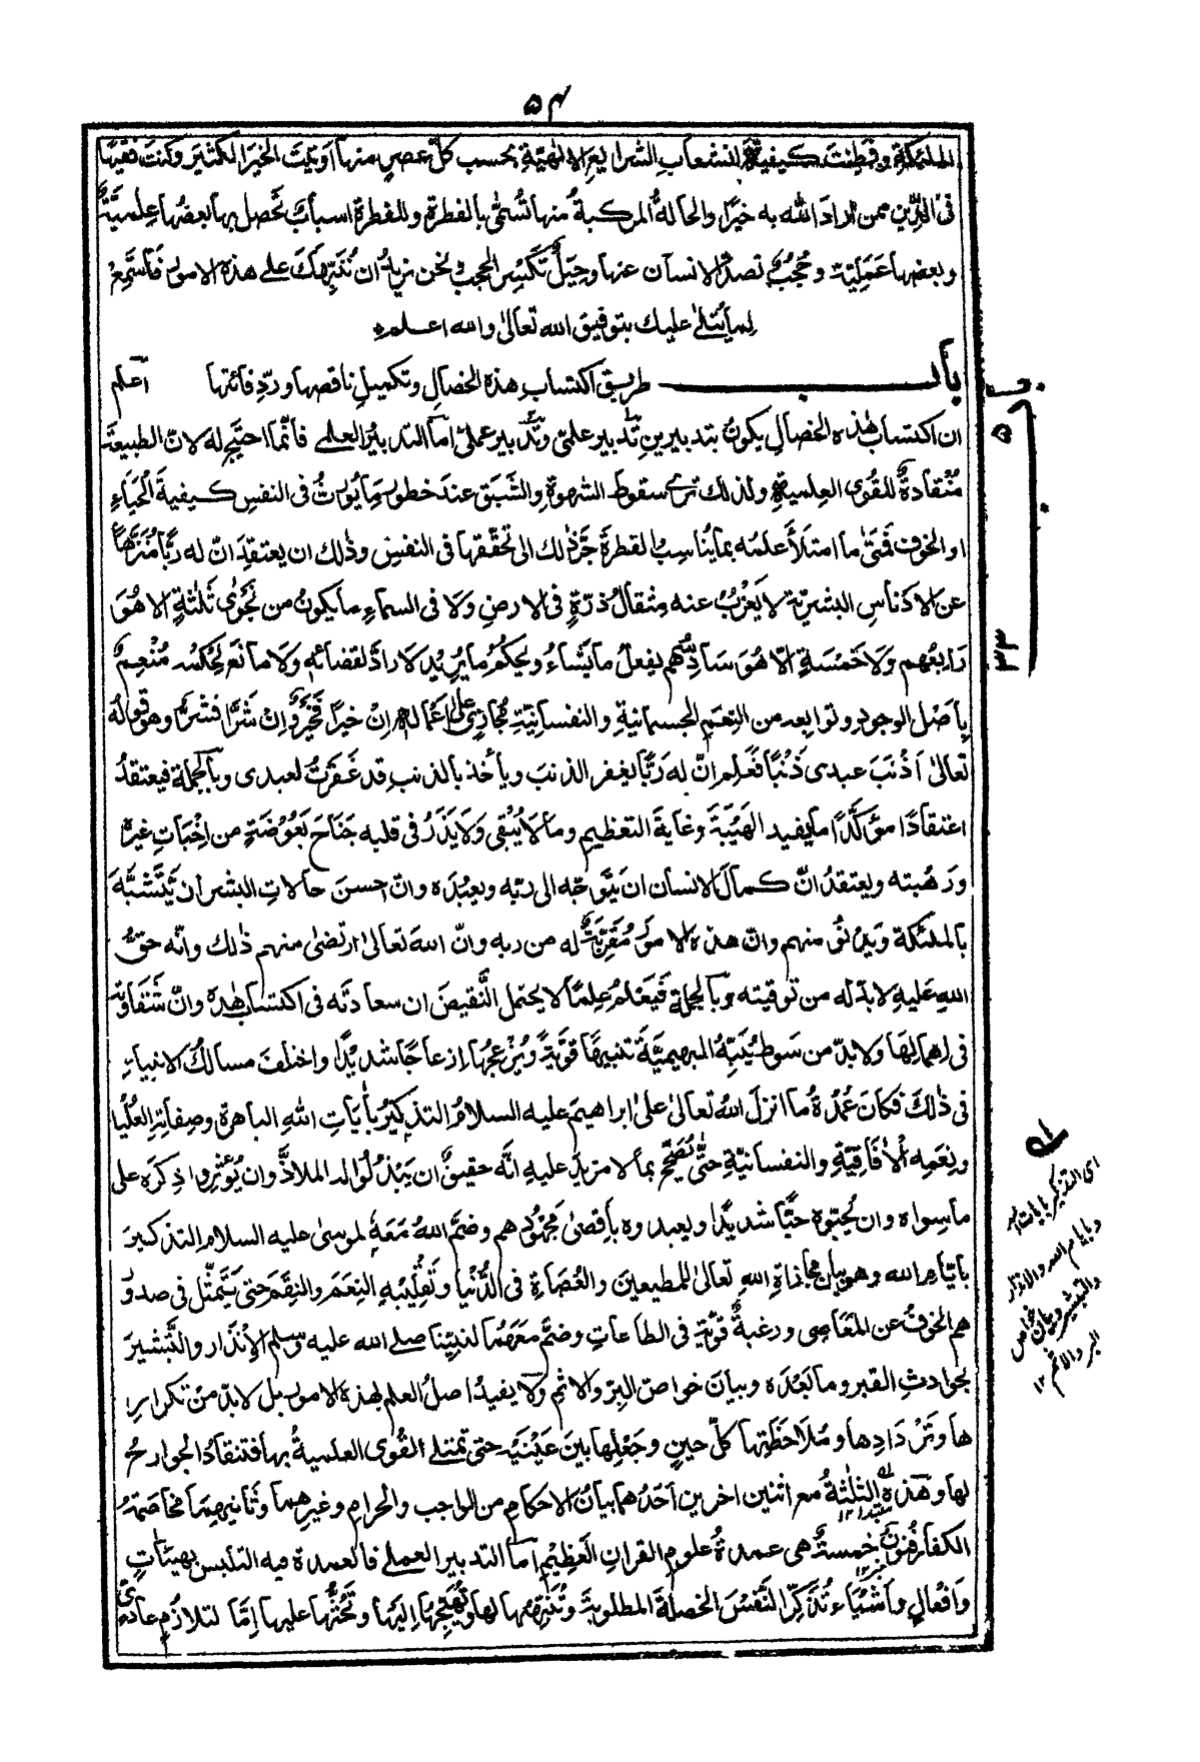 ۵۴
الملئكة وفطنت كيفية انشعاب الشرايع الالهيّة بحسب كلّ عصرٍ منها اوتيتَ الخيرَ الكثيرَ وكنتَ فقيهًا
فى الدِّينِ ممن ارادَ اللّٰهُ به خيرًا والحالةُ المركبةُ منها تُسمّٰى بالفطرة وللفطرة اسبابٌ تحصل بها بعضُها عِلميَّةٌ
وبعضها عَمَليّة وحُجُبٌ تصدُّ الانسان عنها وحِيَلٌ تكسِر الحجب ونحن نريدُ ان نُنَبِّهكَ على هذه الامور فَاستَمِعْ
لِما يُتلىٰ عليك بتوفيق الله تعالىٰ والله اعلمه
باب طريق اكتساب هذه الخصالِ وتكميلِ ناقصها وردِّ فائتها اعلم
ان اكتساب هٰذه الخصال يكونُ بتدبيرينِ تدبير علمىّ وتدبير عملىّ امّا التدبيرُ العلمى فانّما احتيج له لانّ الطبيعةَ
مُنْقادةٌ للقُوى العِلميةِ ولذلك ترى سقوط الشهوةِ والشَّبَق عندَ خطور ما يُورثُ فى النفسِ كيفيةَ الحَياءِ
او الخوف فمَتىٰ ما امتلأَ علمُه بما يُناسِبُ الفطرةَ جَرَّ ذٰلك الى تحقّقها فى النفسِ وذٰلك ان يعتقِدَ انّ له ربًّا مُنَزَّهًا
عن الادْناسِ البشريّة لا يَعْزُبُ عنه مِثقالُ ذرّةٍ فى الارضِ ولا فى السماءِ ما يكونُ من نجْوٰى ثَلٰثةٍ الا هُوَ
رَابعُهم ولا خَمْسَةٍ الّا هُوَ سَادِسُهم يفعلُ ما يَشاءُ ويحكمُ ما يُريْد لا رادَّ لقضائه ولا مانعَ لحُكمه مُنْعِمٌ
بِاَصْل الوجودِ وتوابعه من النِعَمِ الجسمانيةِ والنفسانيّةِ مُجازٍ علىٰ اَعْمالهم اِنْ خيرًا فخَيْرٌ وَاِنْ شَرًّا فشرٌّ وهو قولهُ
تعالىٰ اَذْنَبَ عبدى ذَنْبًا فعَلِم انّ له رَبًّا يغفر الذنبَ ويأخذ بالذنبِ قد غَفرتُ لعبدى وبالجملة فيعتقدُ
اعتقادًا مؤكّدًا ما يفيد الهَيْبَةَ وغايةَ التعظيمِ وما لا يُبْقى ولا يَذَرُ فى قلبه جَناحَ بَعُوْضَةٍ من اِخْباتِ غيرِه
ورَهْبته ويعتقدُ انّ كمالَ الانسان ان يتوجّه الى ربّه ويعبُدَه وانّ احسنَ حالاتِ البشر ان يَتَشَبَّهَ
بالملئكة ويَدْنُوَ منهم وانّ هذه الامورَ مُقَرِّبَةٌ له من ربه وانّ اللهَ تعالىٰ ارتضىٰ منهم ذٰلك وانّه حقُّ
اللهِ عَليهِ لابدّ له من توفيته وبالجملة فيَعْلمُ عِلمًا لا يحتمل النّقيضَ ان سعادتَه فى اكتساب هٰذه وانّ شَقاوتَه
فى اهمالِها ولابدّ من سَوطٍ يُنَبِّهُ البهيميّةَ تنبيهًا قويًّا ويُزعجُها اِزعاجًا شديدًا واختلف مسالكُ الانبياءِ
فى ذٰلكَ فكانَ عُمْدَةُ ما انزلَ اللهُ تعالىٰ علىٰ ابراهيمَ عليه السلامُ التذكيرُ بِاٰيَاتِ اللهِ الباهرة وصِفاتِه العُلْيا
ونِعَمِه الآفاقيّةِ والنفسانيّةِ حتّٰى يُصَحِّحَ بما لا مزيدَ عليهِ انّه حقيقٌ ان يَبْذُلُوا له الملاذَّ وان يُؤثِرُوا ذِكرَه على
ما سِواه وان يُحِبّوه حُبًّا شديدًا ويعبدوه بِاَقصىٰ مجْهُوْدهم وضمَّ اللهُ مَعَه لموسىٰ عليه السلام التذكيرَ
بايّام الله وهو بيان مجازاةِ اللهِ تعالىٰ للمطيعينَ والعُصاةِ فى الدُّنْيا وتقْلِيْبِه النِعَمَ والنِّقَمَ حتى يَتَمثّل فى صدور
هم الخوفُ عن المَعَاصِى ورغبةٌ قويّة فى الطاعاتِ وضمَّ مَعَهُما لنبيّنا صلى الله عليه وسلم الاِنْذار والتَّبشيرَ
بحوادثِ القبرِ وما بَعْدَه وبيانَ خواصّ البِرِّ والاثمِ ولا يفيدُ اصلُ العلم بهذه الامور بل لابدّ من تكرارِ
ها وتَرْدَادِها ومُلاحَظَتِها كلَّ حينٍ وجَعْلِها بينَ عَيْنَيه حتى تمتلئ القُوى العلميةُ بها فتنقادَ الجوارحُ
لها وهٰذه الثلٰثةُ مع اثنين اخرين احَدُهما بيانُ الاحكامِ من الواجب والحرام وغيرهما وثانيهما مخاصَمةُ
الكفار فُنونٌ خمسةٌ هى عمدةُ علومِ القراٰنِ العَظِيْمِ امّا التدبيرُ العملى فالعمدة فيه التلبس بهيئاتٍ
وَاَفعالٍ وَاَشْيَاء تُذَكّرُ النّفْسَ الخصلةَ المطلوبةَ وتُنَبِّهُها لها وتُهَيِّجُها اِليها وتَحُثُّها عليها اِمَّا لتلازُمٍ عادىّ
۵
۳۳
اى التذكير بايات الله
وبايام الله والانذار
والتبشير وبيان خواص
البر والاثم ۱۲